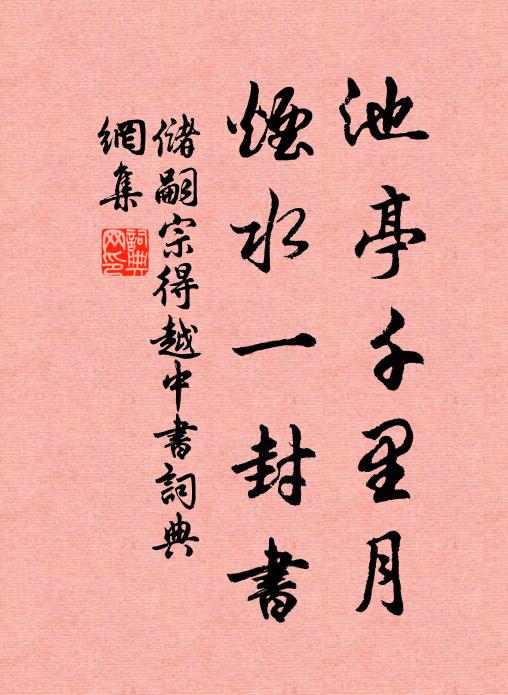 池亭千里月
煙水一封書
儲嗣宗得越中書詞典
網集
詞典網印